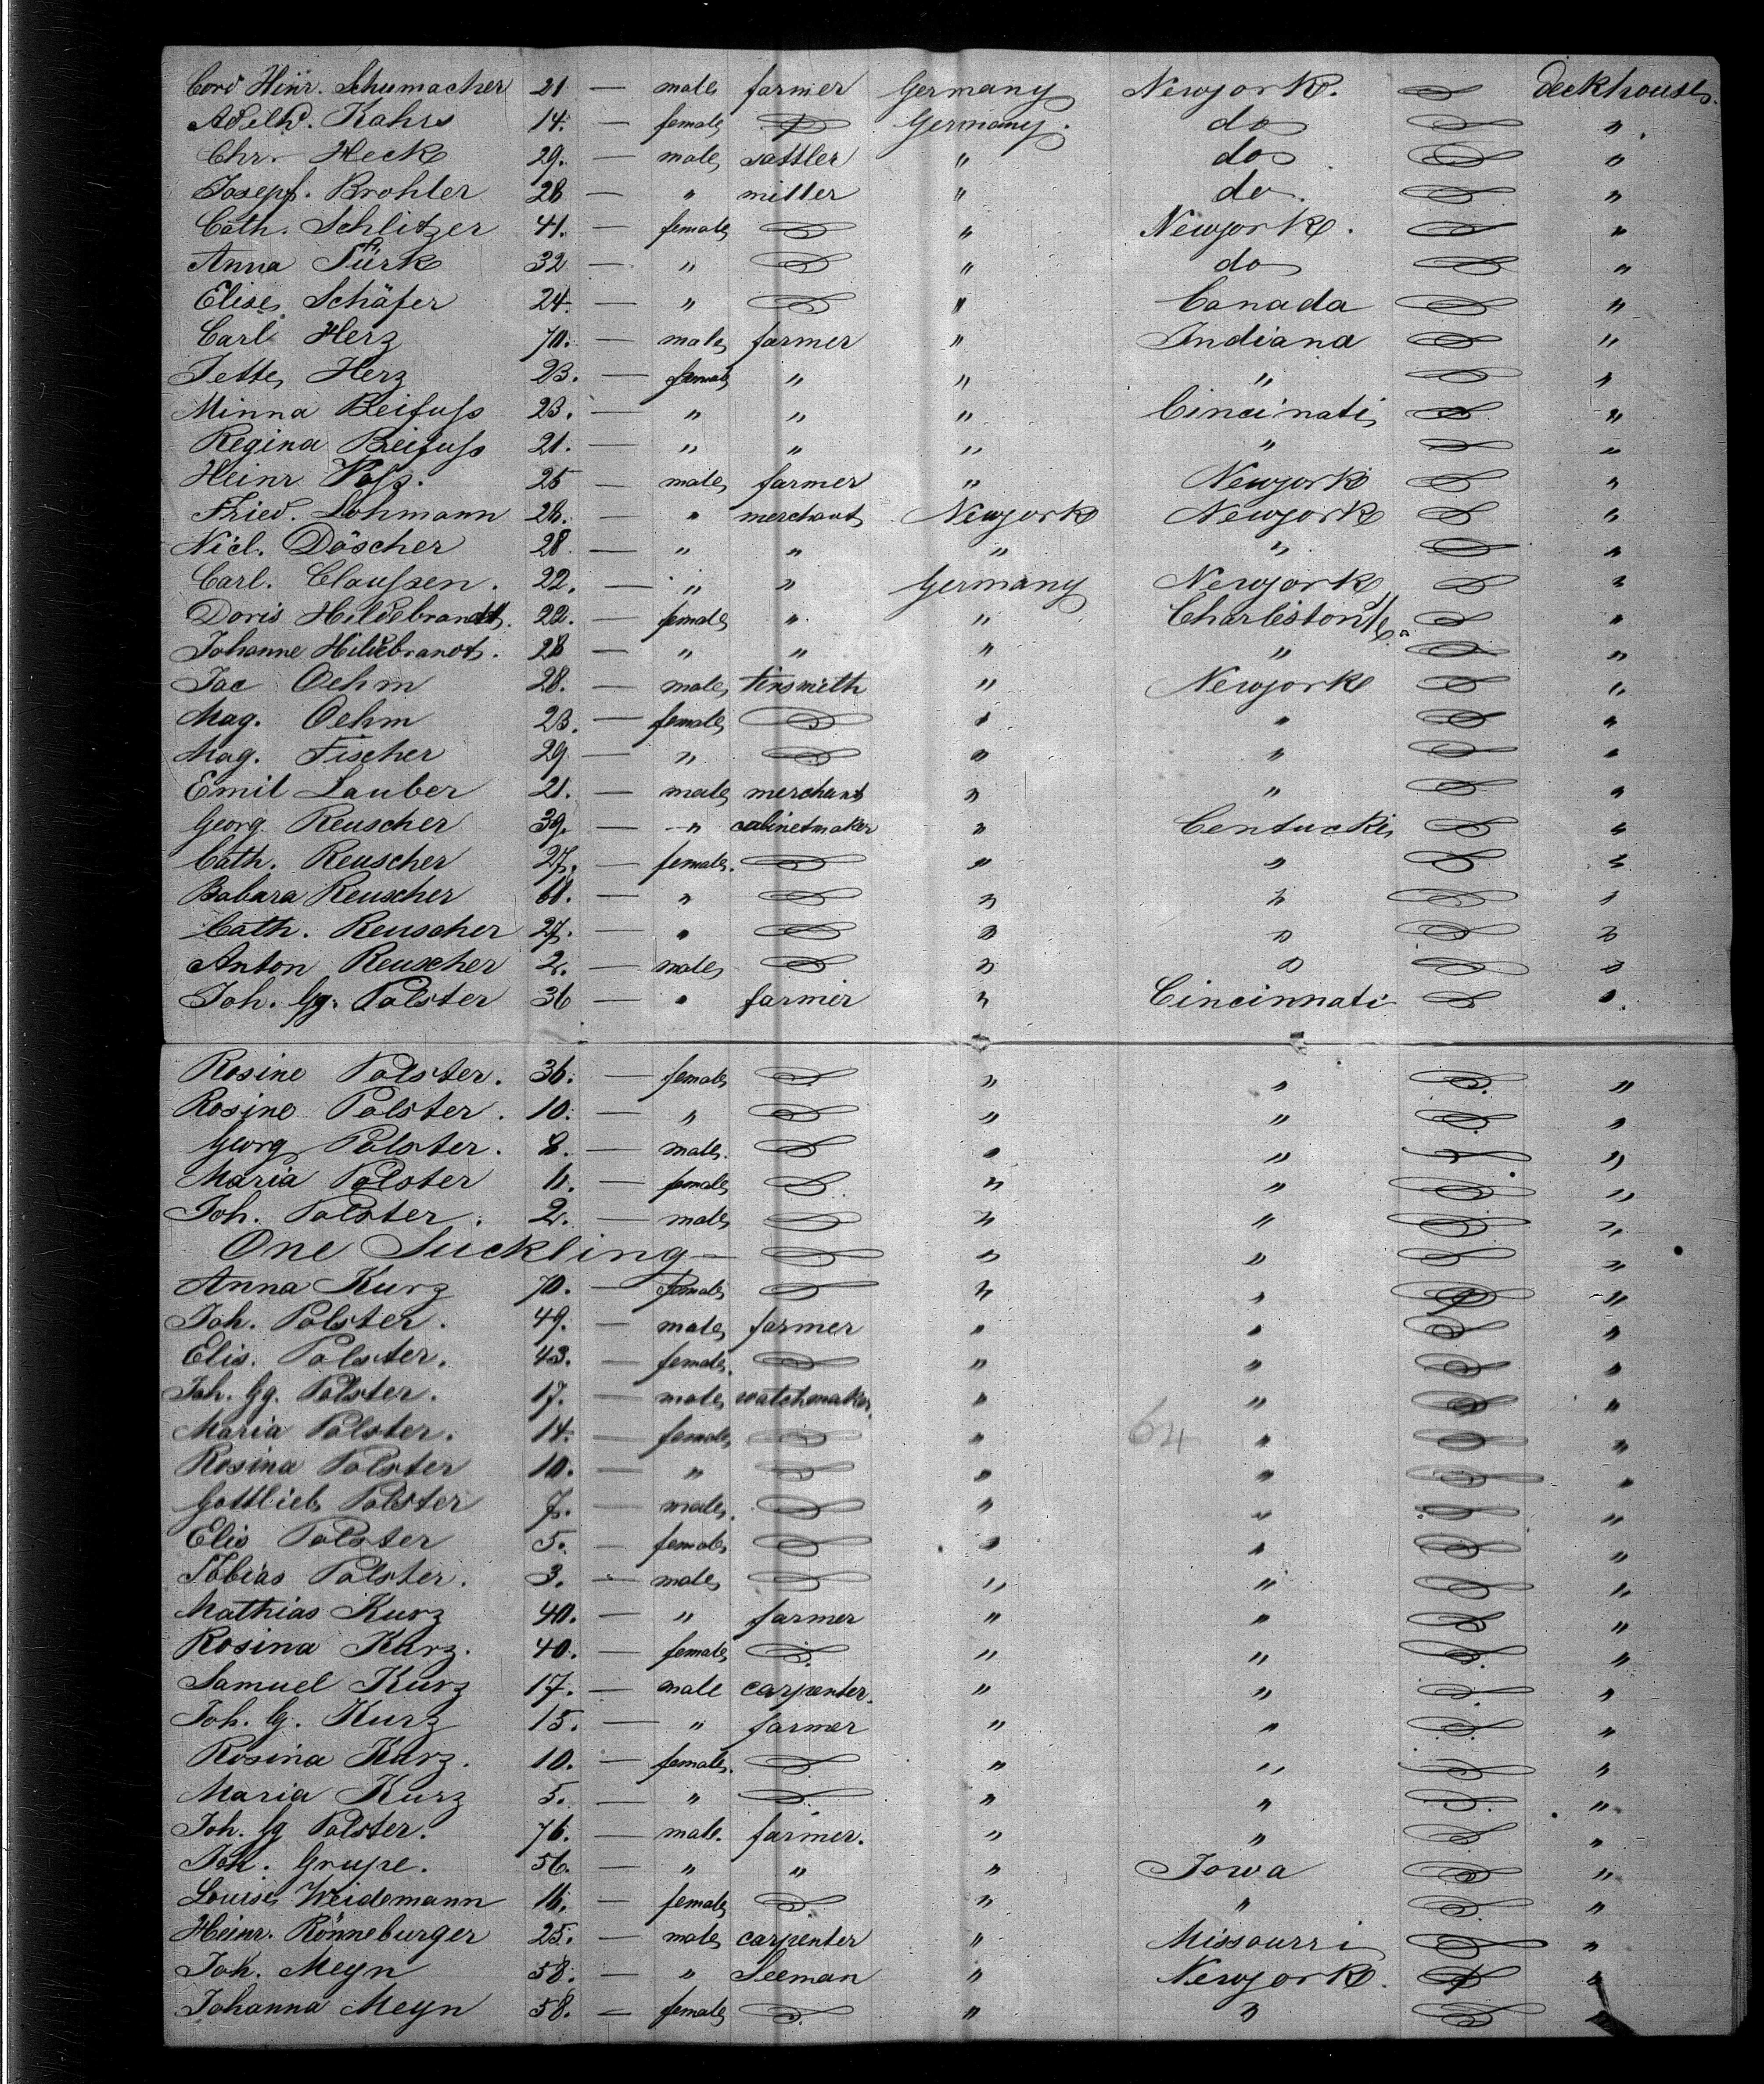 Cord Hinr. Schumacher 21 — male farmer Germany Newyork. deckhouse.
Adelh. Kahrs 14. — female Germany. do " .
Chr. Heck 29. — male sattler " do "
Joseph. Brohler 28 — " miller " do. "
Cath. Schlitzer 41. — female " Newyork. "
Anna Türk 32 — " " do "
Elise Schäfer 24. — " " Canada "
Carl Herz 70. — male farmer " Indiana "
Jette Herz 23. — female " " " "
Minna Beifuss 23. — " " " Cincinati "
Regina Beifuss 21. — " " " " "
Heinr. Voss. 25 — male farmer " Newyork "
Fried. Lohmann 28. — " merchant Newyork Newyork "
Nicl. Döscher 28 — " " " " "
Carl. Claussen. 22. — " " Germany Newyork "
Doris Hildebrandt. 22. — female " " Charleston "
Johanne Hildebrandt. 28 — " " " " "
Jac Oehm 28. — male tinsmith " Newyork "
Mag. Oehm 23. — female " " "
Mag. Fischer 29 — " " " "
Emil Lauber 21. — male merchant " " "
Georg Reuscher 39. — " cabinetmaker " Centucki "
Cath. Reuscher 27. — female. " " "
Babara Reuscher 61. — " " " "
Cath. Reuscher 27. — " " " "
Anton Reuscher 2. — male " " "
Joh. Gg. Polster 36 — " farmer " Cincinnati "
Rosine Polster. 36. — female " " "
Rosine Polster. 10. — " " " "
Georg Polster. 8. — male. " " "
Maria Polster — female " " "
Joh. Polster. 2. — male " " "
One Suckling — " " "
Anna Kurz 70. — female " " "
Joh. Polster. 49. — male farmer " " "
Elis. Polster. 43. — female. " " "
Joh. Gg. Polster. 17. — male watchmaker. " " "
Maria Polster. 14. — female " 64 " "
Rosina Polster 10. — " " " "
Gottlieb Polster 7. — male. " " "
Elis Polster 5. — female " " "
Tobias Polster. 3. — male " " "
Mathias Kurz 40. — " farmer " " "
Rosina Kurz. 40. — female " " "
Samuel Kurz 17. — male carpenter. " " "
Joh. G. Kurz 15. — " farmer " " "
Rosina Kurz. 10. — female. " " "
Maria Kurz 5. — " " " "
Joh. Gg Polster. 76. — male. farmer. " " "
Joh. Grupe. 56. — " " " Iowa "
Louise Weidemann 16. — female " " "
Heinr. Rönneburger 25. — male carpenter " Missourri "
Joh. Meyn 58. — " Seeman " Newyork. "
Johanna Meyn 58. — female " " "